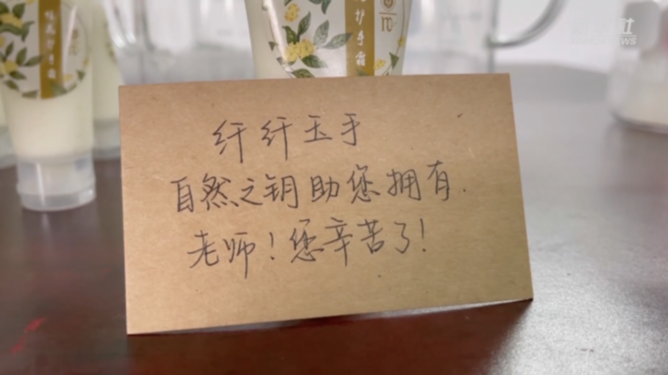 护手霜
纤纤玉手
自然之钥助您拥有.
老师!您辛苦了!